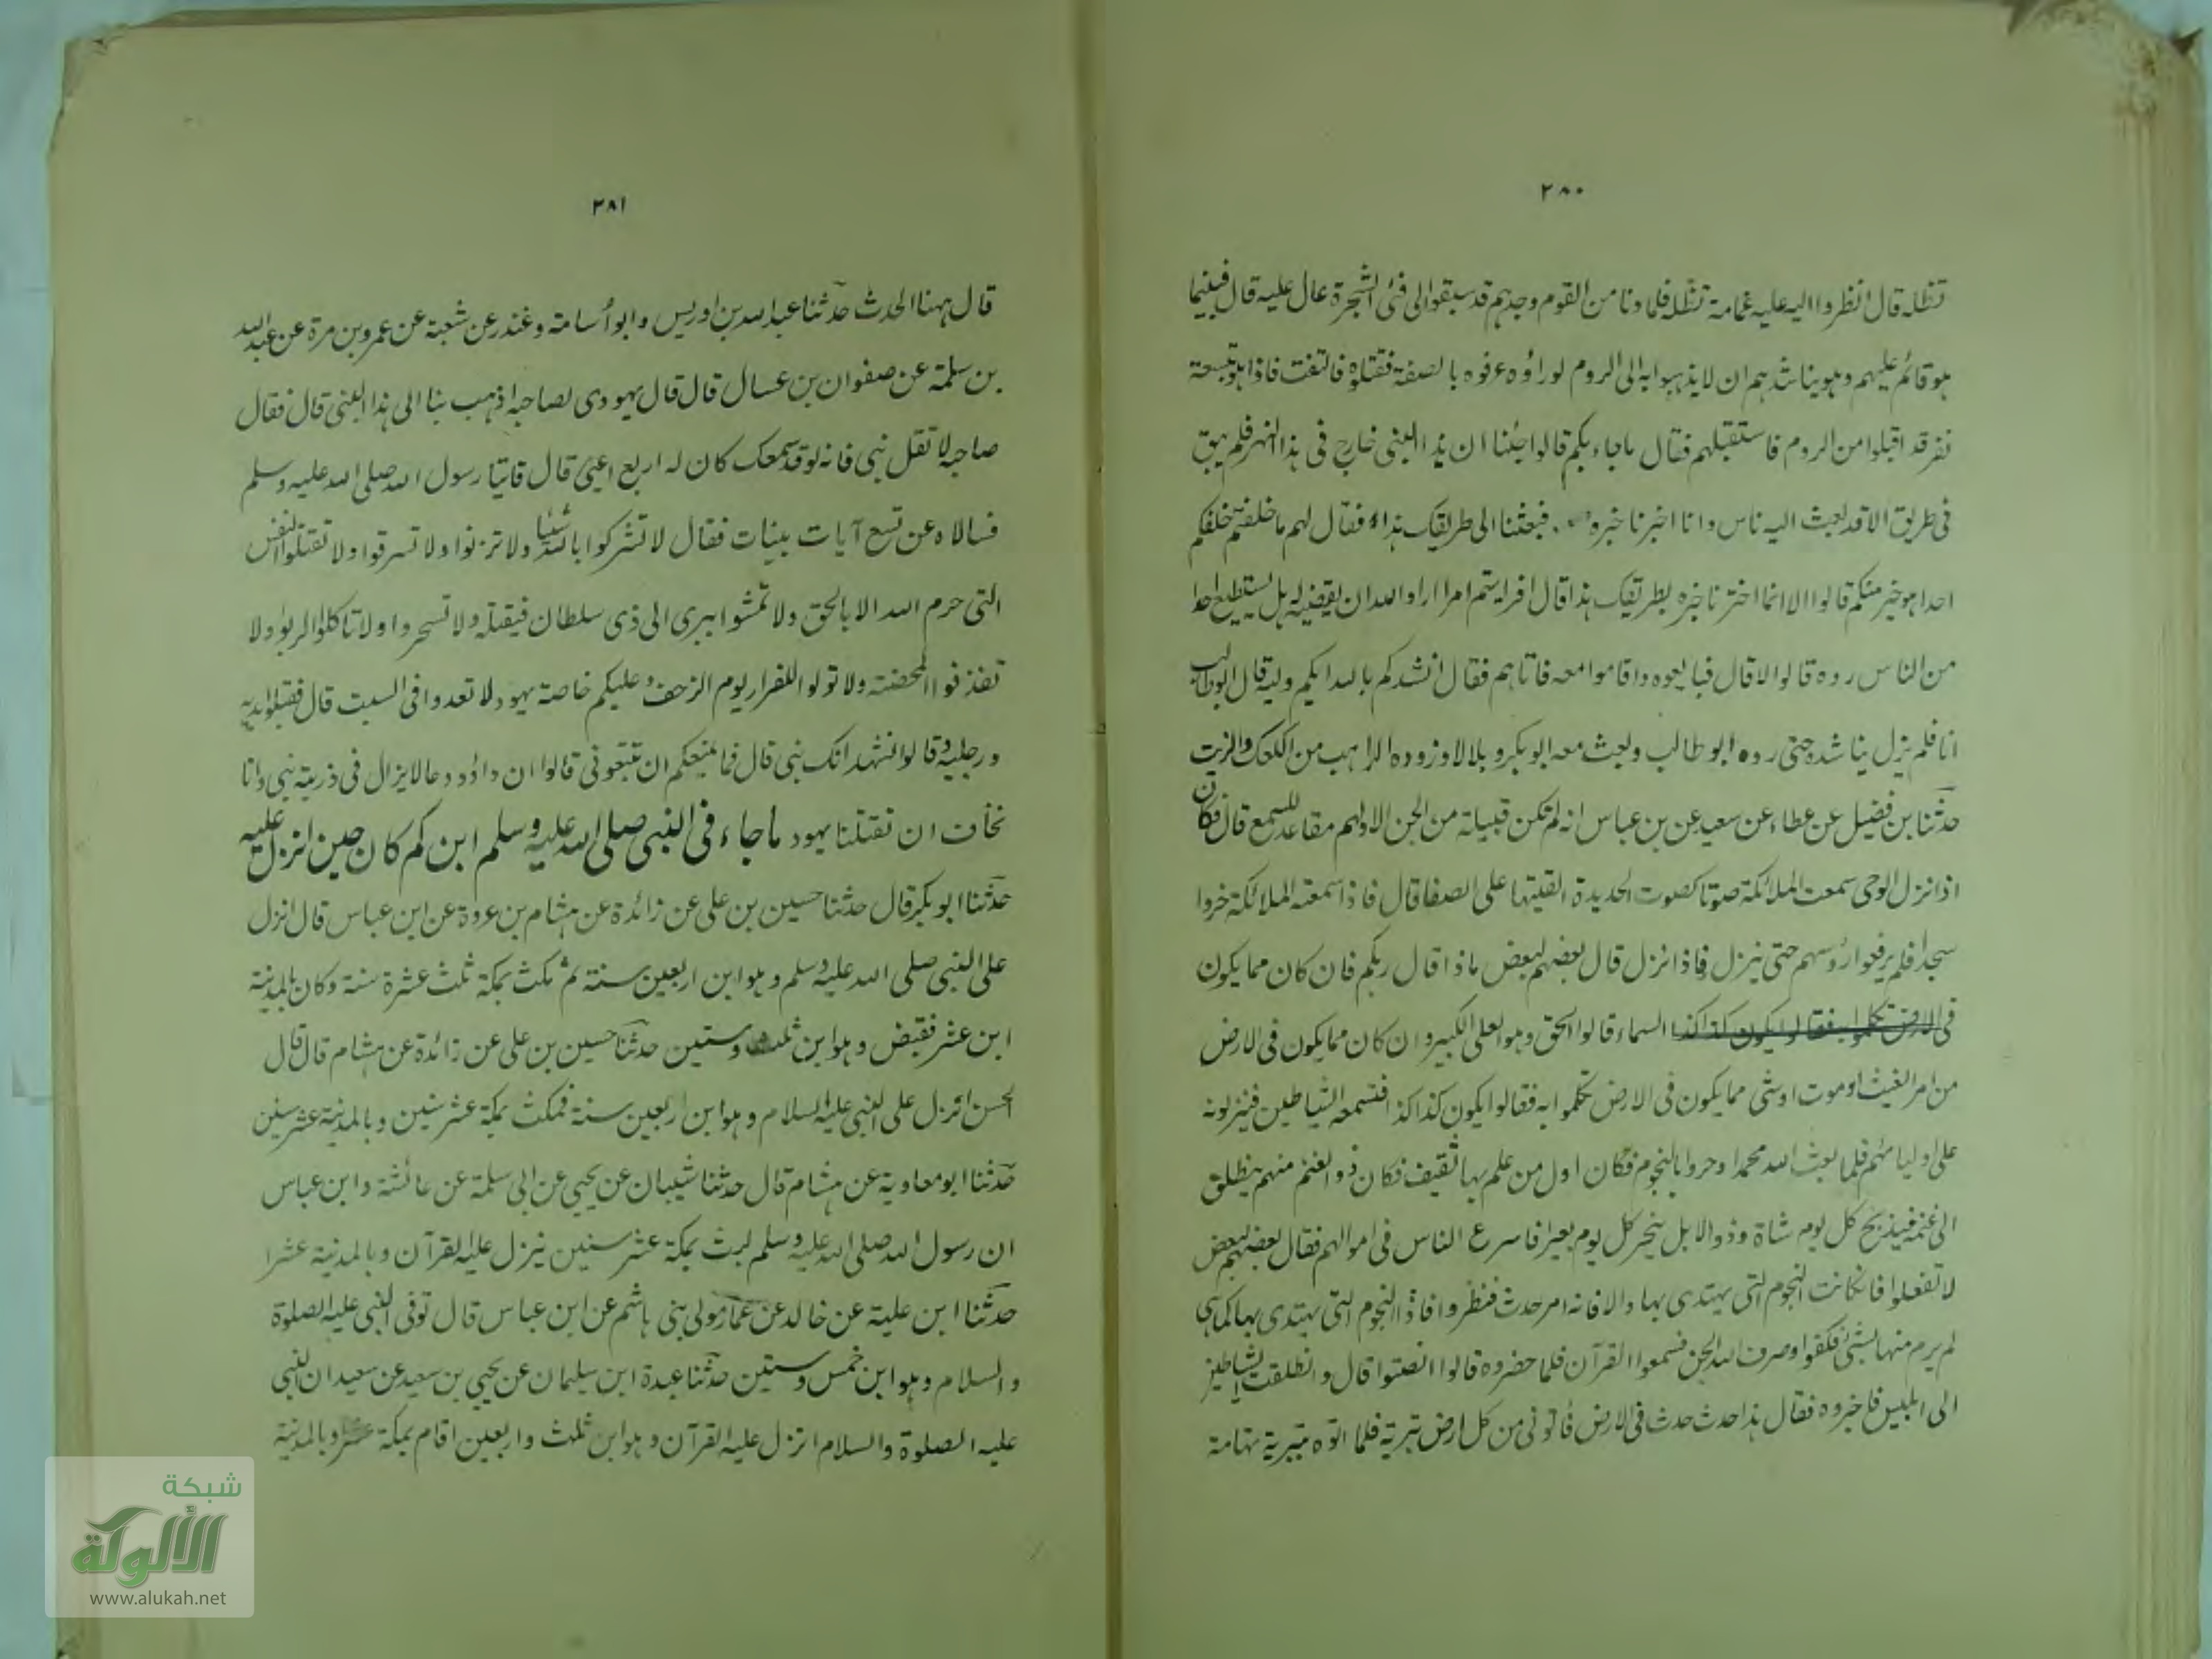 ٢٨٠
تظله قال انظروا اليه عليه غمامة تظله فلما دنا من القوم وجدهم قد سبقوا الى فئ الشجرة عال عليه قال فبينما
هو قائم عليهم وهو يناشدهم ان لا يذهبوا به الى الروم لو راؤه عرفوه بالصفة فقتلوه فالتفت فاذا هو بتسعة
نفر قد اقبلوا من الروم فاستقبلهم فقال ماجاء بكم قالوا جئنا ان هذا النبى خارج فى هذا الشهر فلم يبق
فى طريق الا قد بعث اليه ناس وانا اخبرنا خبره فبعثنا الى طريقك هذا فقال لهم ما خلفتم خلفكم
احدا هو خير منكم قالوا لا انما اخترنا خيره بطريقك هذا قال افرايتم امرا اراد الله ان يقضيه هل يستطيع احد
من الناس رده قالوا لا قال فبايعوه واقاموا معه فاتاهم فقال انشدكم بالله ايكم وليه قال ابو طالب
انا فلم يزل يناشده حتى رده ابو طالب وبعث معه ابو بكر وبلالا وزوده الراهب من الكعك والزيت
حدثنا بن فضيل عن عطاء عن سعيد عن بن عباس انه لم تكن قبيلة من الجن الا ولهم مقاعد للسمع قال فكان
اذا نزل الوحى سمعت الملائكة صوتا كصوت الحديدة القيتها على الصفا قال فاذا سمعته الملائكة خروا
سجدا فلم يرفعوا رؤسهم حتى ينزل فاذا نزل قال بعضهم لبعض ماذا قال ربكم فان كان مما يكون
فى الارض تكلموا به فقالوا يكون كذا كذا السماء قالوا الحق وهو العلى الكبير وان كان مما يكون فى الارض
من امر الغيث او موت او شئ مما يكون فى الارض تكلموا به فقالوا يكون كذا كذا فتسمعه الشياطين فينزلونه
على اوليائهم فلما بعث الله محمدا دحروا بالنجوم فكان اول من علم بها ثقيف فكان ذو الغنم منهم ينطلق
الى غنمه فيذبح كل يوم شاة وذو الابل ينحر كل يوم بعيرا فاسرع الناس فى اموالهم فقال بعضهم لبعض
لا تفعلوا فان كانت النجوم التى يهتدى بها والا فانه امر حدث فنظروا فاذا النجوم التى يهتدى بها كما هى
لم يرم منها بشئ فكفوا وصرف الله الجن فسمعوا القرآن فلما حضروه قالوا انصتوا قال وانطلقت الشياطين
الى ابليس فاخبروه فقال هذا حدث حدث فى الارض فأتونى من كل ارض بتربة فلما اتوه بتربة تهامة
٢٨١
قال ههنا الحدث حدثنا عبد الله بن ادريس وابو أسامة وغندر عن شعبة عن عمرو بن مرة عن عبد الله
بن سلمة عن صفوان بن عسال قال قال يهودى لصاحبه اذهب بنا الى هذا النبى قال فقال
صاحبه لا تقل نبى فانه لو قد سمعك كان له اربع اعين قال فاتيا رسول الله صلى الله عليه وسلم
فسالاه عن تسع آيات بينات فقال لا تشركوا بالله شيئا ولا تزنوا ولا تسرقوا ولا تقتلوا النفس
التى حرم الله الا بالحق ولا تمشوا ببرى الى ذى سلطان فيقتله ولا تسحروا ولا تاكلوا الربوا ولا
تقذفوا المحصنة ولا تولوا للفرار يوم الزحف وعليكم خاصة يهود لا تعدوا فى السبت قال فقبلوا يديه
ورجليه وقالوا نشهد انك نبى قال فما يمنعكم ان تتبعونى قالوا ان داؤد دعا لا يزال فى ذريته نبى وانا
نخاف ان تقتلنا يهود ماجاء فى النبى صلى الله عليه وسلم ابن كم كان حين انزل عليه
حدثنا ابو بكر قال حدثنا حسين بن على عن زائدة عن هشام بن عروة عن ابن عباس قال انزل
على النبى صلى الله عليه وسلم وهو ابن اربعين سنة ثم مكث بمكة ثلث عشرة سنة وكان بالمدينة
ابن عشر فقبض وهو ابن ثلث وستين حدثنا حسين بن على عن زائدة عن هشام قال قال
الحسن انزل على النبى عليه السلام وهو ابن اربعين سنة فمكث بمكة عشر سنين وبالمدينة عشر سنين
حدثنا ابو معاوية عن هشام قال حدثنا شيبان عن يحيى عن ابى سلمة عن عائشة وابن عباس
ان رسول الله صلى الله عليه وسلم لبث بمكة عشر سنين ينزل عليه القرآن وبالمدينة عشرا
حدثنا ابن علية عن خالد عن عمار مولى بنى هاشم عن ابن عباس قال توفى النبى عليه الصلوة
والسلام وهو ابن خمس وستين حدثنا عبدة ابن سليمان عن يحيى بن سعيد عن سعيد ان النبى
عليه الصلوة والسلام انزل عليه القرآن وهو ابن ثلث واربعين اقام بمكة عشرا وبالمدينة
شبكة
الألوكة
www.alukah.net